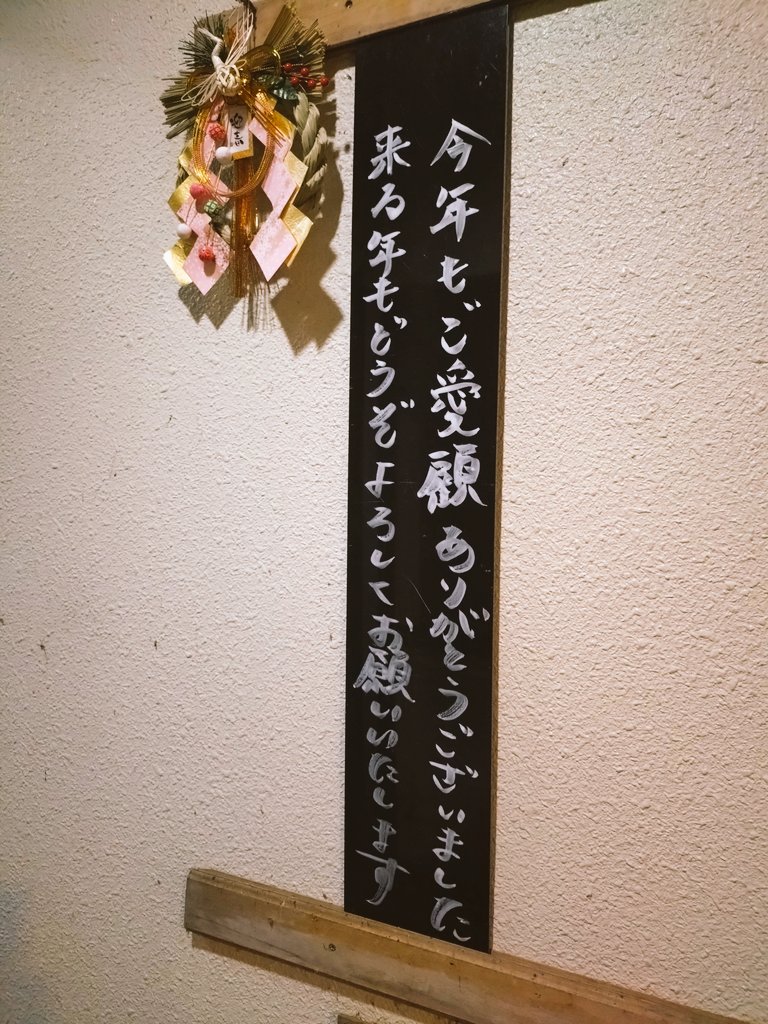 今年もご愛顧ありがとうございました
来る年もどうぞよろしくお願いいたします